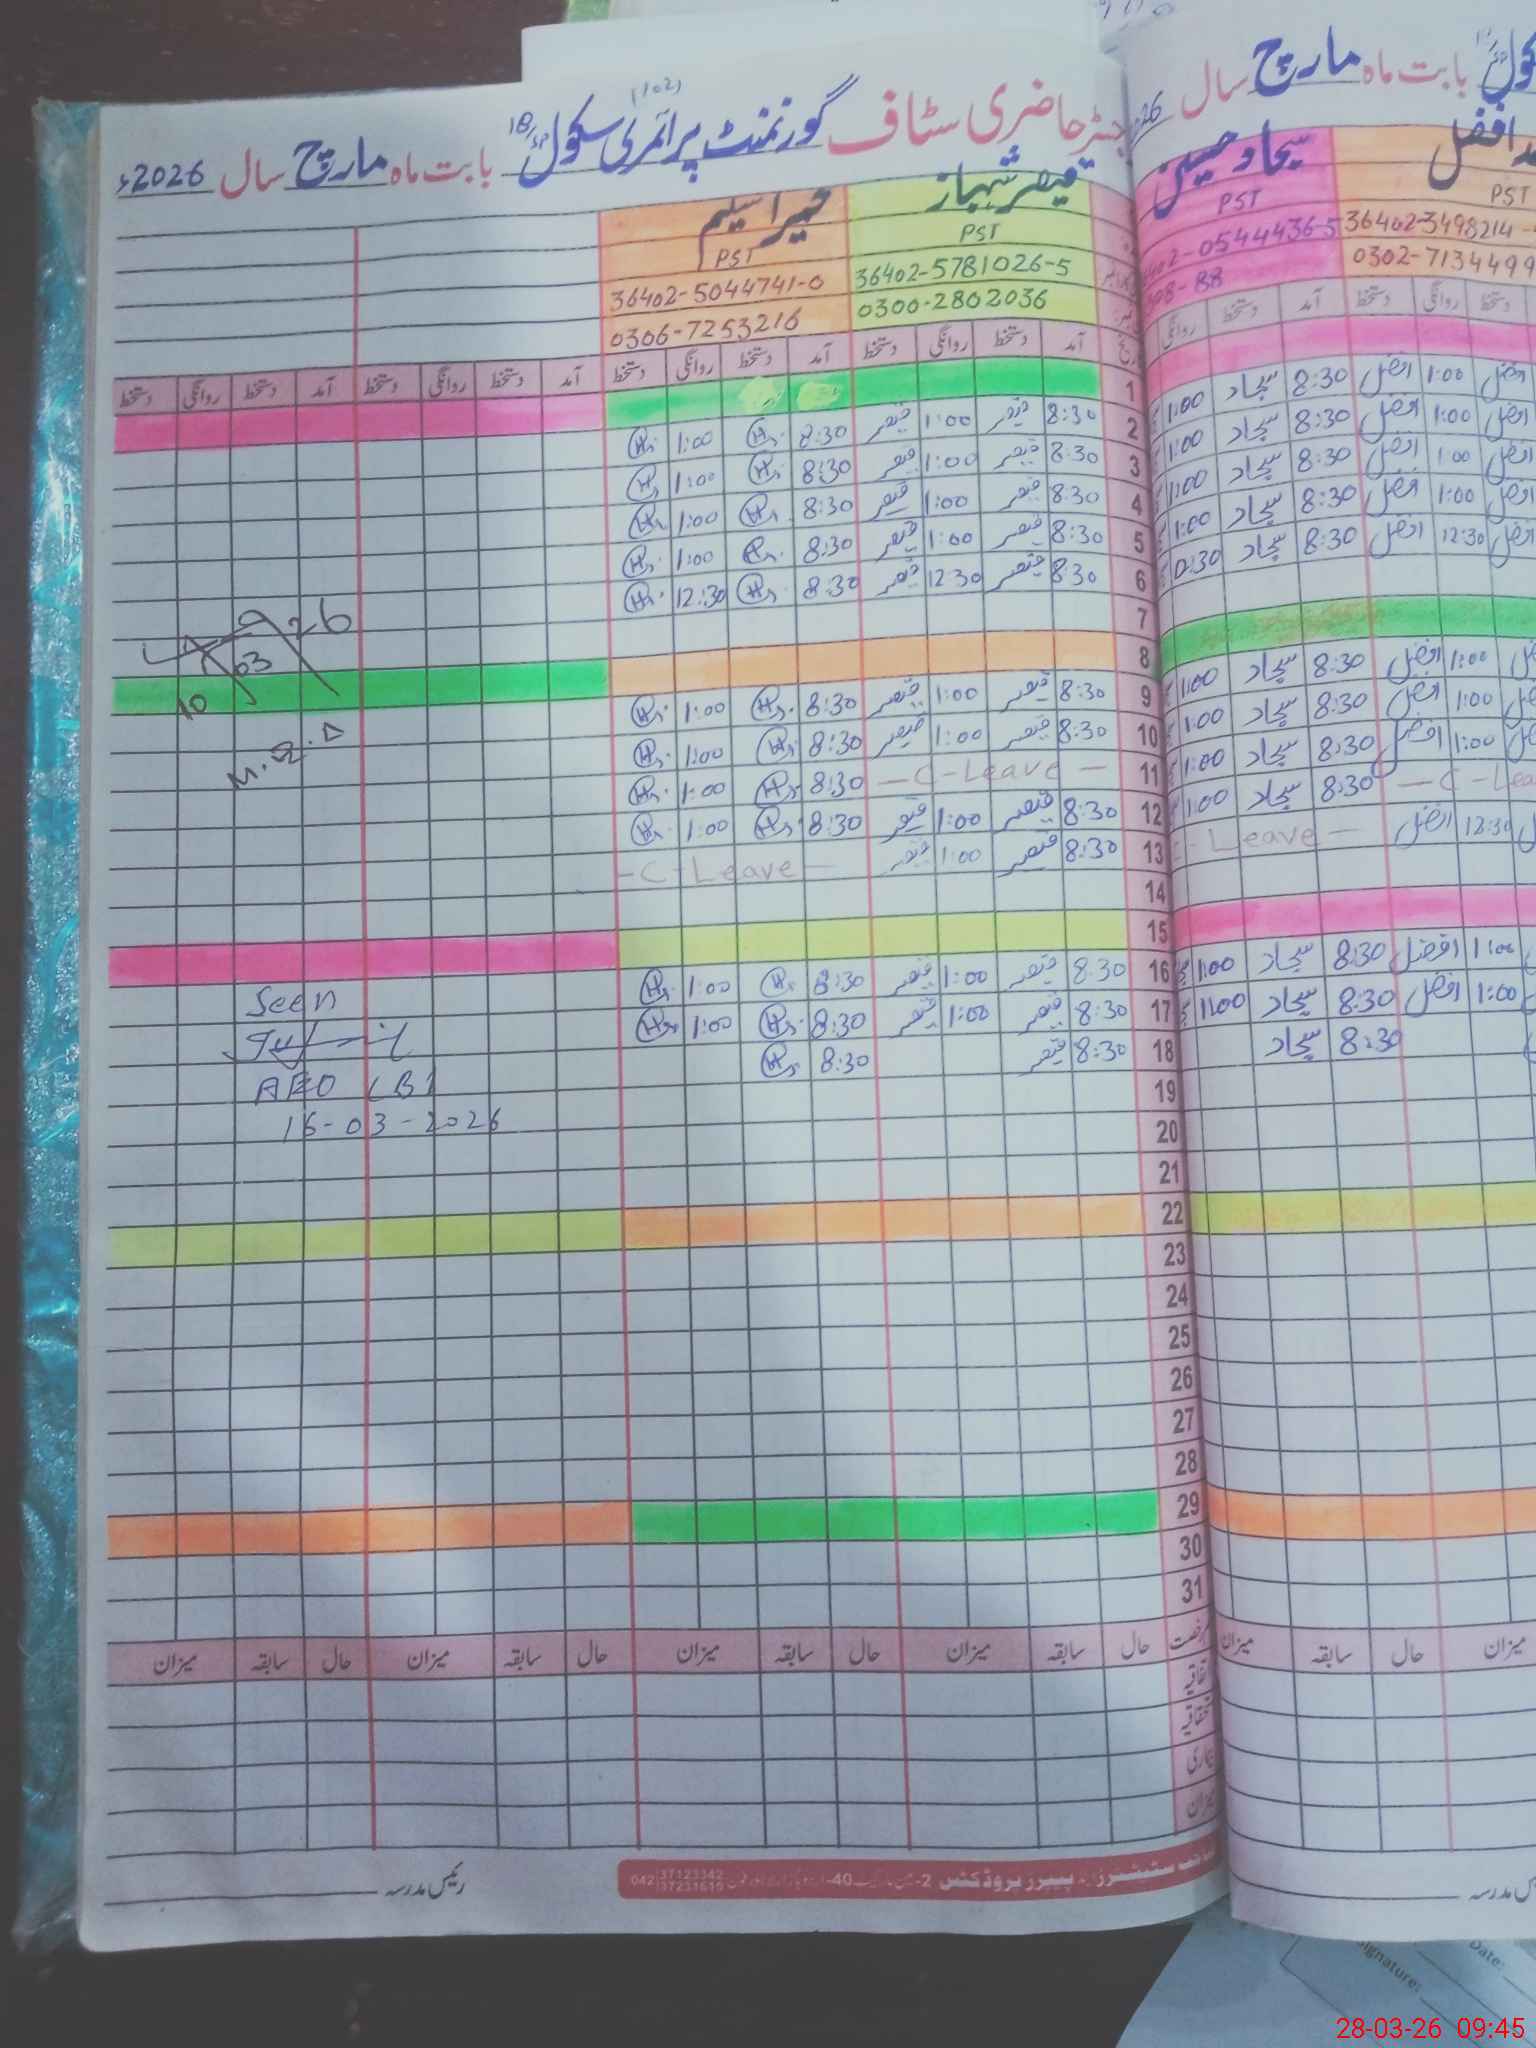 رجسٹر حاضری سٹاف گورنمنٹ پرائمری سکول 18/ بابت ماہ مارچ سال 2026ء
(102)
بابت ماہ مارچ سال
قیصر شہباز
PST
36402-5781026-5
0300-2802036
حمیرا سلیم
PST
36402-5044741-0
0306-7253216
سجاد حسین
PST
0544436-5
افضل
PST
36402-3498214
0302-7134499
آمد دستخط روانگی دستخط آمد دستخط روانگی دستخط آمد دستخط روانگی دستخط آمد دستخط روانگی دستخط
دستخط روانگی دستخط آمد دستخط روانگی
1
2 8:30 قیصر 1:00 قیصر 8:30 1:00
8:30 سجاد 1:00 افضل 1:00 افضل
3 8:30 قیصر 1:00 قیصر 8:30 1:00
8:30 سجاد 1:00 افضل 1:00 افضل
4 8:30 قیصر 1:00 قیصر 8:30 1:00
8:30 سجاد 1:00 افضل 1:00 افضل
5 8:30 قیصر 1:00 قیصر 8:30 1:00
8:30 سجاد 1:00 افضل 1:00 افضل
6 8:30 قیصر 12:30 قیصر 8:30 12:30
8:30 سجاد افضل 12:30 افضل
7
8
9 8:30 قیصر 1:00 قیصر 8:30 1:00
8:30 سجاد 1:00 افضل 1:00
10 8:30 قیصر 1:00 قیصر 8:30 1:00
8:30 سجاد 1:00 افضل 1:00
11 — C-Leave — 8:30 1:00
8:30 سجاد 1:00 افضل 1:00
12 8:30 قیصر 1:00 قیصر 8:30 1:00
8:30 سجاد 1:00 — C-Lea
13 8:30 قیصر 1:00 قیصر — C-Leave —
Leave — افضل 12:30
14
15
16 8:30 قیصر 1:00 قیصر 8:30 1:00
8:30 سجاد 1:00 افضل 1:00
17 8:30 قیصر 1:00 قیصر 8:30 1:00
8:30 سجاد 1:00 افضل 1:00
18 8:30 قیصر 8:30
8:30 سجاد
19
20
21
22
23
24
25
26
27
28
29
30
31
10 03 26
Seen
AEO (B)
16-03-2026
حال سابقہ میزان حال سابقہ میزان حال سابقہ میزان حال سابقہ میزان
میزان سابقہ حال میزان
رئیس مدرسہ
پیپرز پروڈکٹس
042 37123342
37231619
Date:
Signature:
28-03-26 09:45